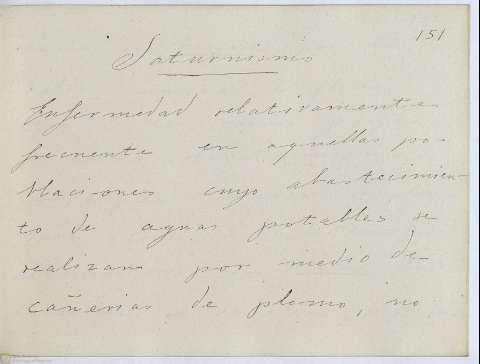 151
Saturnismo
Enfermedad relativamente
frecuente en aquellas po-
blaciones cuyo abastecimien-
to de aguas potables se
realizan por medio de
cañerias de plomo, no